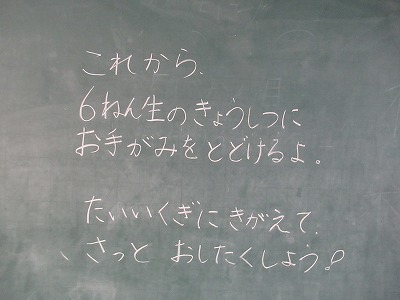 これから、
6ねん生のきょうしつに
お手がみをとどけるよ。
たいいくぎにきがえて、
、さっと おしたくしよう!